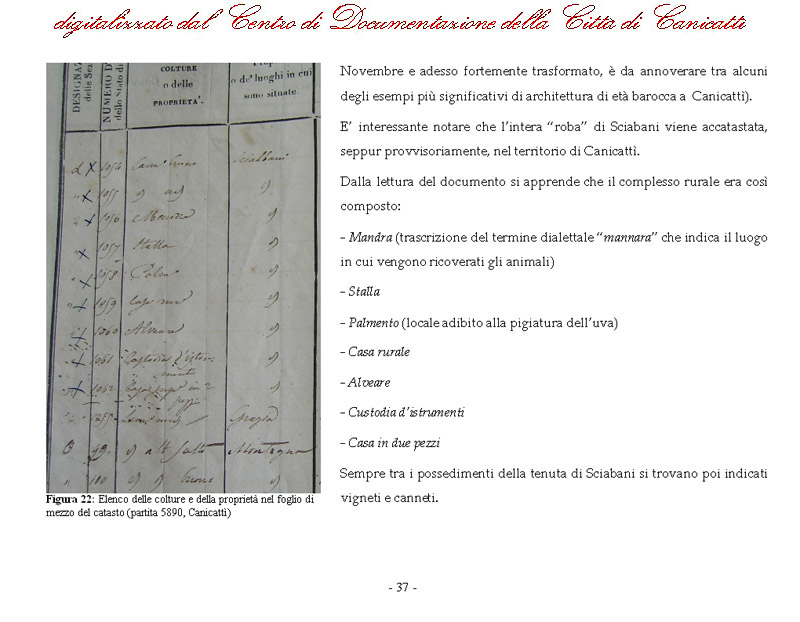 digitalizzato dal Centro di Documentazione della Città di Canicattì
DESIGNAZ
delle Sez
NUMERO D
dello Stato d
COLTURE
o delle
PROPRIETA'.
o de' luoghi in cui
sono situate.
1054
Sciabbani
1055
1056
1057 Stalla
1058
1059
1060 Alveare
1061 Custodia d'istru
menti
1062 in 2
pezzi
Grazia
99. Montagna
100
Figura 22: Elenco delle colture e della proprietà nel foglio di
mezzo del catasto (partita 5890, Canicattì)
Novembre e adesso fortemente trasformato, è da annoverare tra alcuni
degli esempi più significativi di architettura di età barocca a Canicattì).
E' interessante notare che l'intera “roba” di Sciabani viene accatastata,
seppur provvisoriamente, nel territorio di Canicattì.
Dalla lettura del documento si apprende che il complesso rurale era così
composto:
- Mandra (trascrizione del termine dialettale “mannara” che indica il luogo
in cui vengono ricoverati gli animali)
- Stalla
- Palmento (locale adibito alla pigiatura dell'uva)
- Casa rurale
- Alveare
- Custodia d'istrumenti
- Casa in due pezzi
Sempre tra i possedimenti della tenuta di Sciabani si trovano poi indicati
vigneti e canneti.
- 37 -